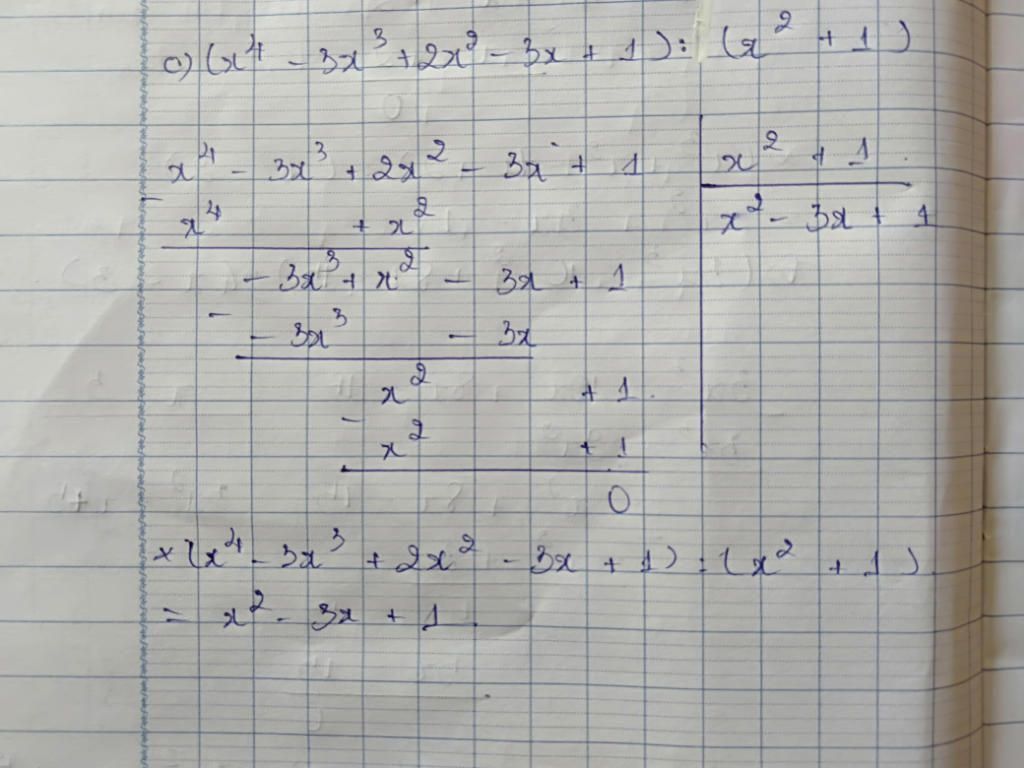 c) (x⁴ - 3x³ + 2x² - 3x + 1) : (x² + 1)
x⁴ - 3x³ + 2x² - 3x + 1 | x² + 1
- x⁴ + x² | x² - 3x + 1
- 3x³ + x² - 3x + 1
- - 3x³ - 3x
x² + 1
- x² + 1
0
x (x⁴ - 3x³ + 2x² - 3x + 1) : (x² + 1)
= x² - 3x + 1.